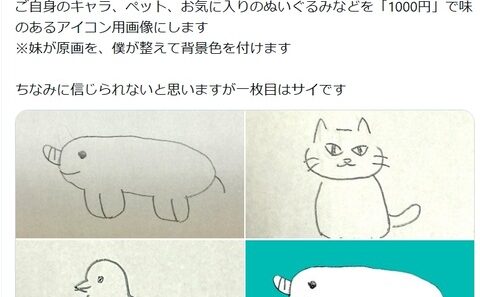 ご自身のキャラ、ペット、お気に入りのぬいぐるみなどを「1000円」で味
のあるアイコン用画像にします
※妹が原画を、僕が整えて背景色を付けます
ちなみに信じられないと思いますが一枚目はサイです